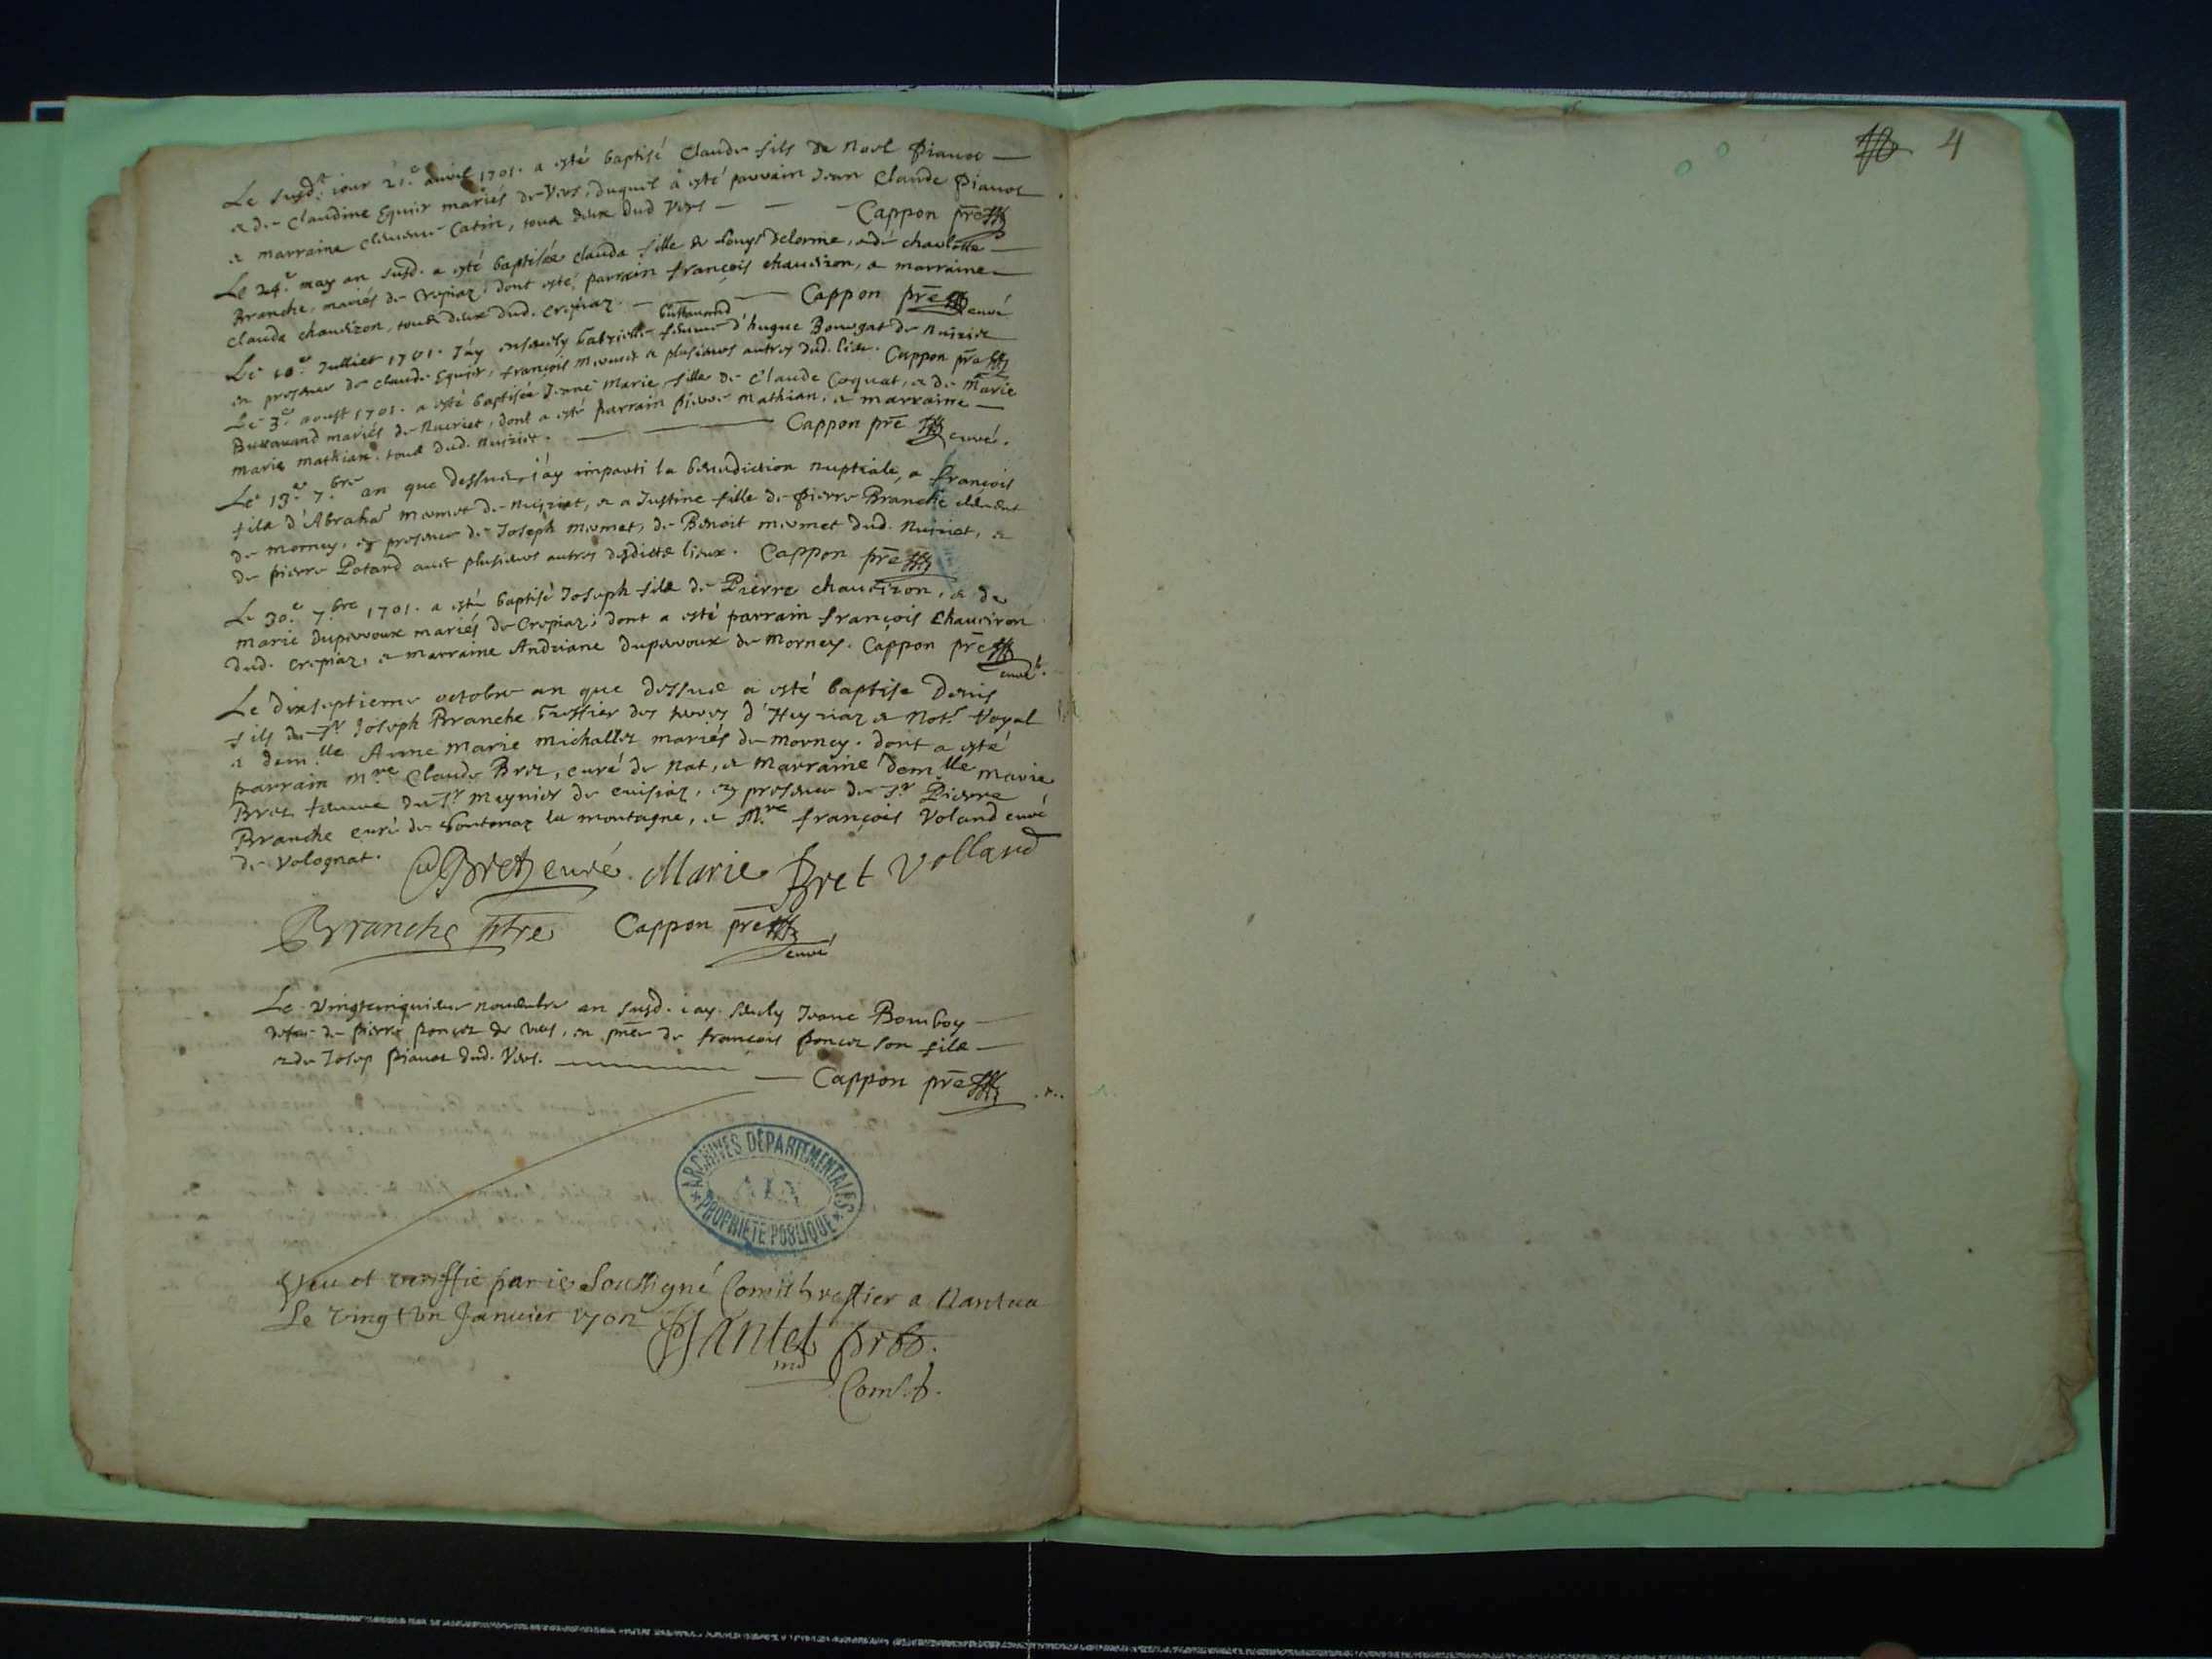 Le susd.t iour 21.e avril 1701. a esté baptisé Claude fils de Noel Pianot
& de Claudine Equier mariés de Vers, duquel a esté parrain Jean Claude Pianot
& marraine Catin, tous deux dud Vers — Cappon prê
Le 24.e may an susd. a esté baptisée Clauda fille de Louys Delorme, & de charlotte
Branche, mariés de Crepiaz; dont esté parrain françois chaudizon, & marraine
Clauda chaudizon, tous deux dud. crepiaz. — Cappon prê curé
buttavand
Le 10.e Julliet 1701. J'ay ensevely Gabrielle femme d'hugue Bourgat de Nuiriet
en presence de Claude Equier, françois mermet & plusieurs autres dud. lieu. Cappon prê
Le 3.e aoust 1701. a esté baptisée Jeane Marie fille de Claude Coquat, & de Marie
Buttavand mariés de Nuiriet, dont a esté parrain pierre Mathian, & marraine
marie mathian. tous dud. Nuiriet. — Cappon prê curé.
Le 13.e 7.bre an que dessus j'ay imparti la benediction nuptiale, a françois
fils d'Abraham mermet de Nuiriet, & a Justine fille de pierre Branche
de mornay, en presence de Joseph mermet, de Benoit mermet dud. Nuiriet, &
de pierre Patard avec plusieurs autres desdicts lieux. Cappon prê
Le 30.e 7.bre 1701. a esté baptisé Joseph fils de Pierre chaudizon, & de
marie duperroux mariés de Crepiaz; dont a esté parrain françois Chaudizon
dud. crepiaz, & marraine Andriane duperroux de Mornay. Cappon prê
curé.
Le dixseptieme octobre an que dessus a esté baptise Denis
fils du Sr Joseph Branche Greffier des terres d'Heyriaz & Not.e Royal
& dem.lle Anne Marie michallet mariés de Mornay. dont a esté
parrain M.re Claude Bret, curé de Nat, & Marraine dem.lle marie
Bret femme du Sr Meynier de cuisiaz, en presence de Sr Pierre
Branche curé de la montagne, & M.re françois Voland curé
de Volognat. Bret curé. Marie Bret Volland
Branche ptre Cappon prê
curé
Le vingtcinquieme novembre an susd. iay sevely Jeane Bomboy
de pierre ponçet de vers, en pñce de françois ponçet son fils
& de Josep pianot dud. Vers. — Cappon prê
ARCHIVES DÉPARTEMENTALES
AIN
PROPRIÉTÉ PUBLIQUE
Veu et veriffie par ie Soussigné Comis greffier a Nantua
Le vingt un Janvier 1702
Com.
4